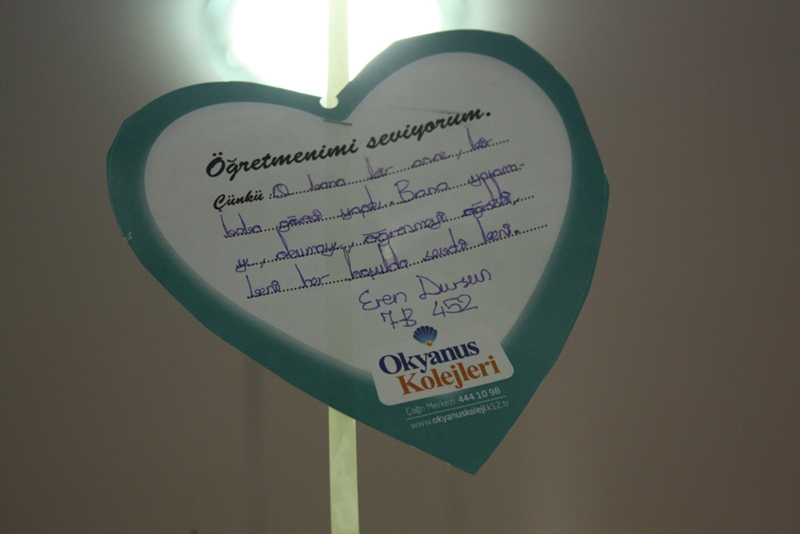 Öğretmenimi seviyorum.
Çünkü : O bana bir anne, bir
baba görevi yaptı. Bana yaşama-
yı, okumayı, öğrenmeyi öğretti,
beni her koşulda sevdi beni.
Eren Dursun
7-B 452
Okyanus
Kolejleri
Çağrı Merkezi 444 10 98
www.okyanuskoleji.k12.tr